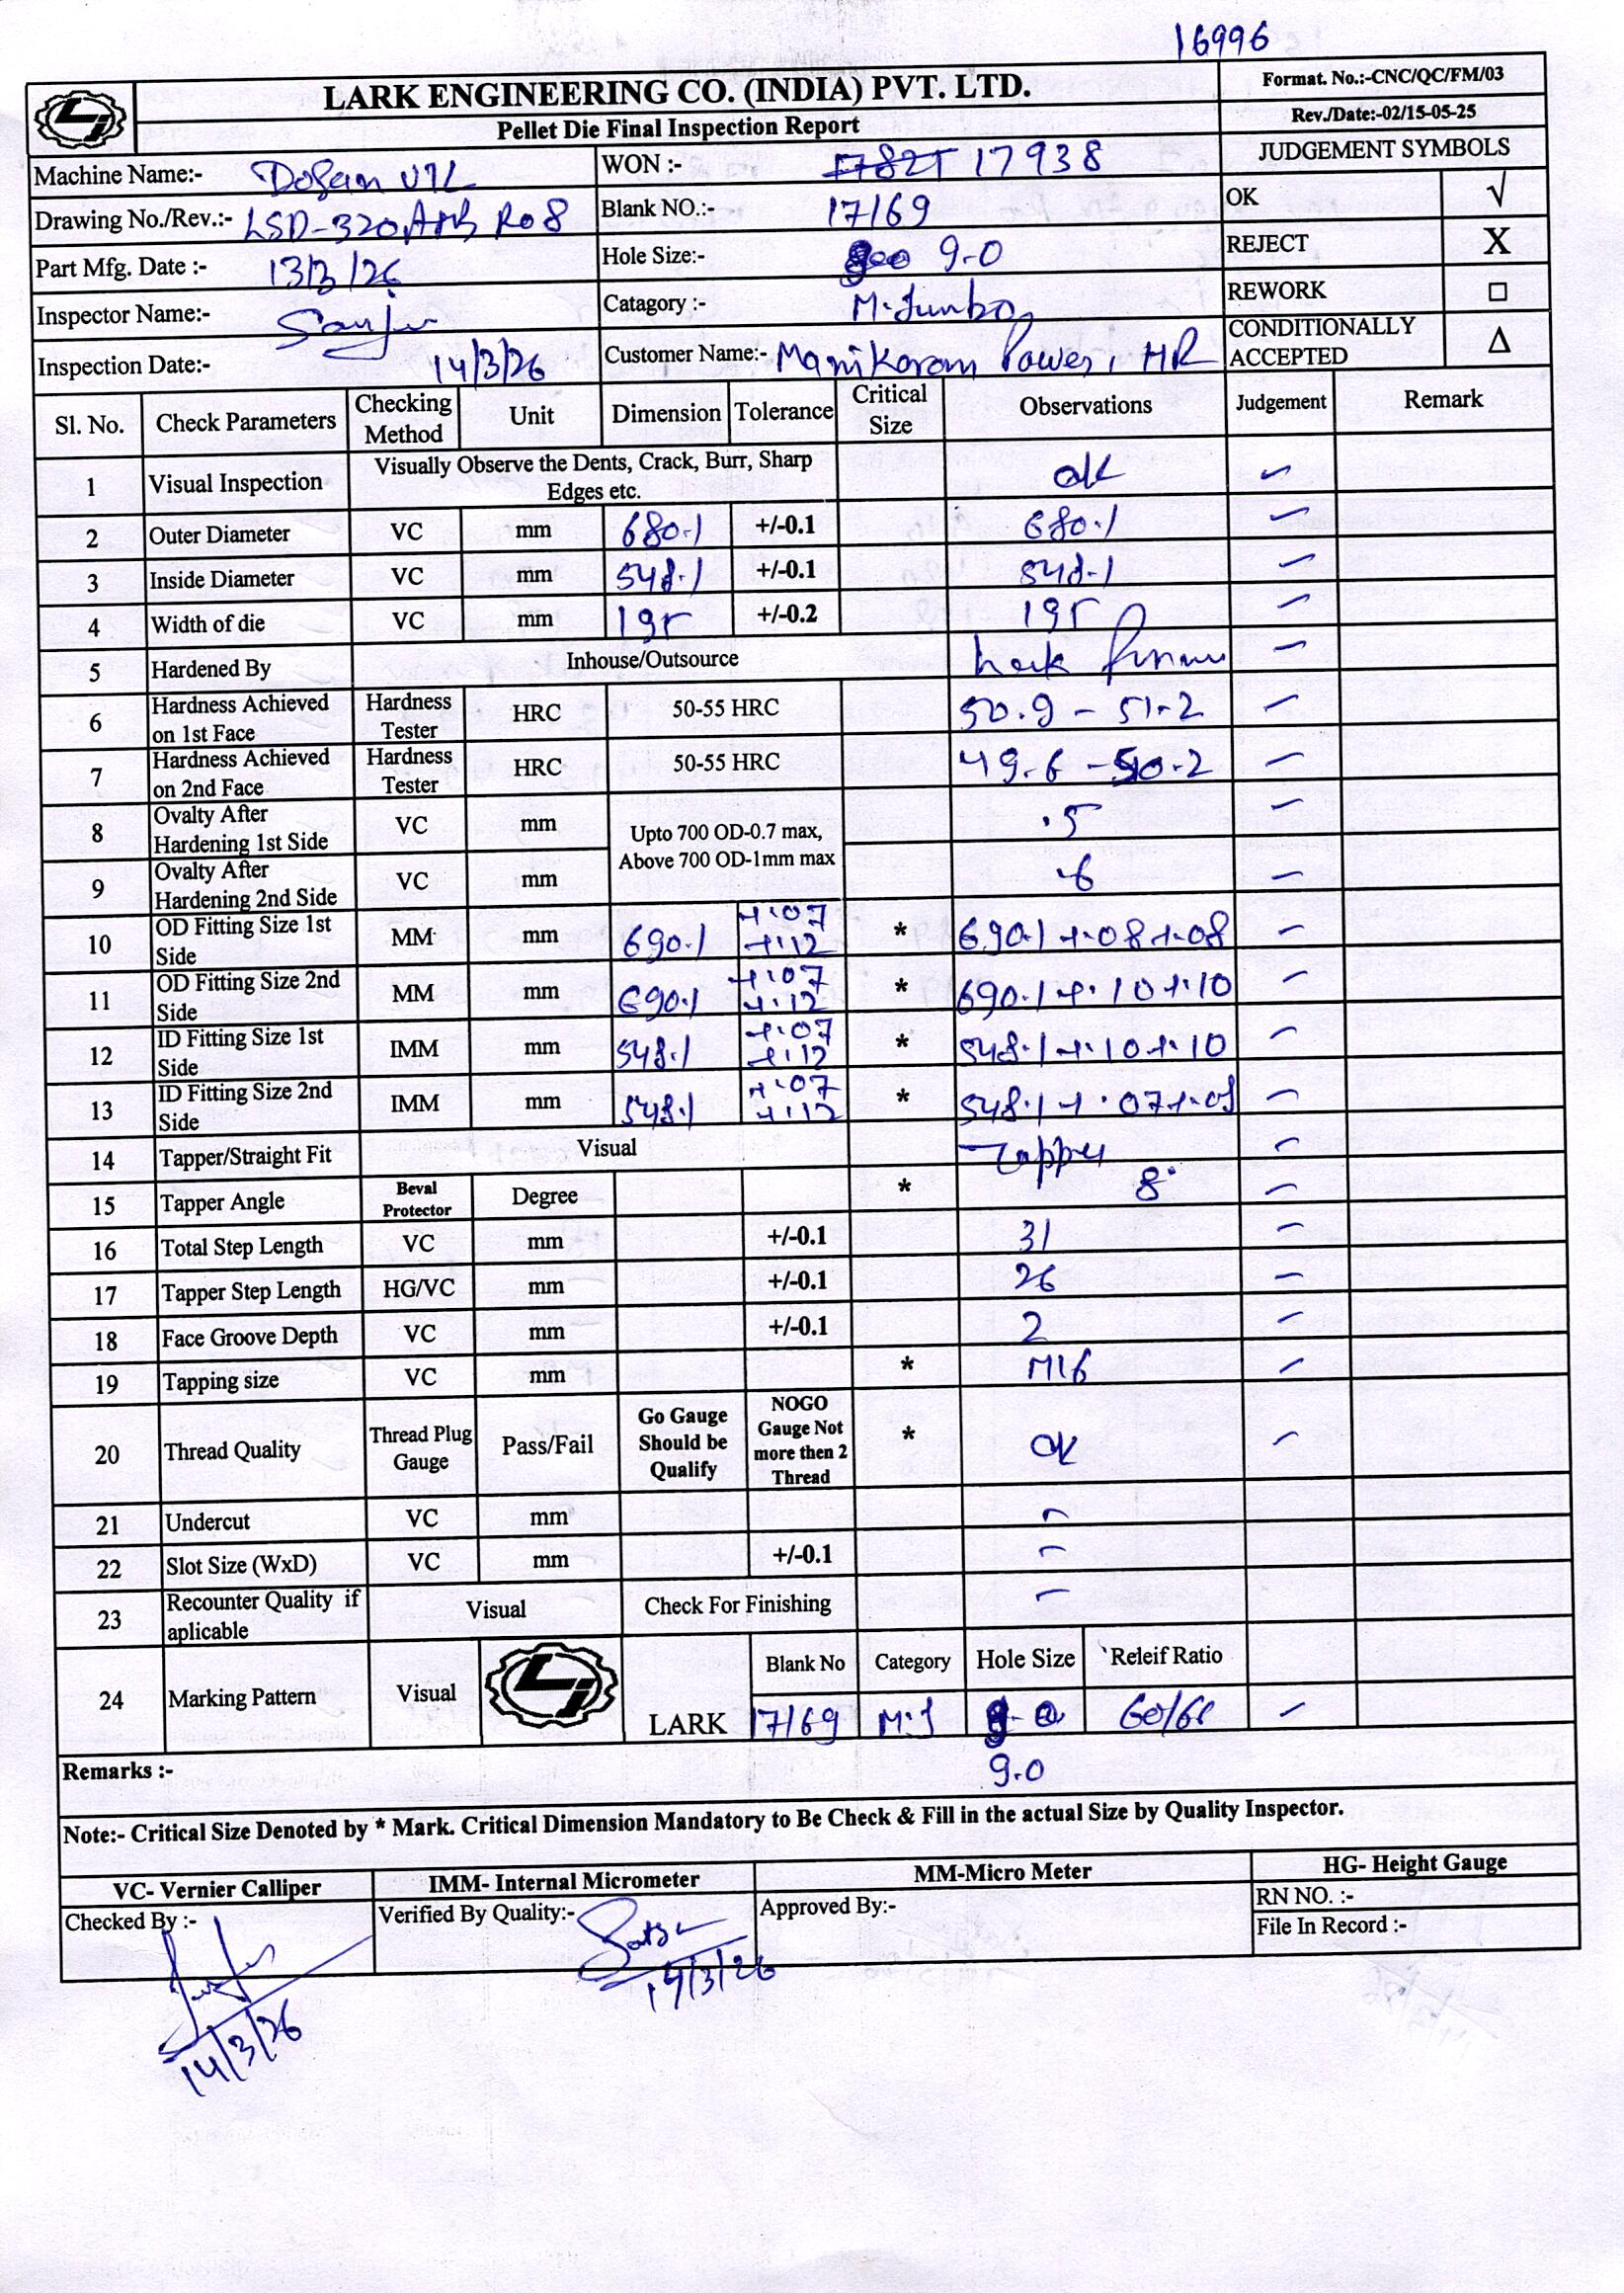 16996
LARK ENGINEERING CO. (INDIA) PVT. LTD.
Pellet Die Final Inspection Report
Format. No.:-CNC/QC/FM/03
Rev./Date:-02/15-05-25
JUDGEMENT SYMBOLS
OK √
REJECT X
REWORK □
CONDITIONALLY ACCEPTED Δ
Machine Name:-
WON :- 17938
Drawing No./Rev.:- LSD-320 R08
Blank NO.:- 17/69
Part Mfg. Date :- 13/3/26
Hole Size:- 9.0
Inspector Name:- Sanju
Catagory :- M.Jumbo
Inspection Date:- 14/3/26
Customer Name:- Manikaran Power, HR
Sl. No. Check Parameters Checking Method Unit Dimension Tolerance Critical Size Observations Judgement Remark
1 Visual Inspection Visually Observe the Dents, Crack, Burr, Sharp Edges etc. ok
2 Outer Diameter VC mm 680.1 +/-0.1 680.1
3 Inside Diameter VC mm 548.1 +/-0.1 548.1
4 Width of die VC mm 195 +/-0.2 195
5 Hardened By Inhouse/Outsource
6 Hardness Achieved on 1st Face Hardness Tester HRC 50-55 HRC 50.9 - 51.2
7 Hardness Achieved on 2nd Face Hardness Tester HRC 50-55 HRC 49.6 - 50.2
8 Ovalty After Hardening 1st Side VC mm Upto 700 OD-0.7 max, Above 700 OD-1mm max .5
9 Ovalty After Hardening 2nd Side VC mm .6
10 OD Fitting Size 1st Side MM mm 690.1 +.07 +.12 * 690.1 +.08 +.08
11 OD Fitting Size 2nd Side MM mm 690.1 +.07 +.12 * 690.1 +.10 +.10
12 ID Fitting Size 1st Side IMM mm 548.1 +.07 +.12 * 548.1 +.10 +.10
13 ID Fitting Size 2nd Side IMM mm 548.1 +.07 +.12 * 548.1 +.07 +.08
14 Tapper/Straight Fit Visual Tapper
15 Tapper Angle Beval Protector Degree * 8°
16 Total Step Length VC mm +/-0.1 31
17 Tapper Step Length HG/VC mm +/-0.1 26
18 Face Groove Depth VC mm +/-0.1 2
19 Tapping size VC mm * M16
20 Thread Quality Thread Plug Gauge Pass/Fail Go Gauge Should be Qualify NOGO Gauge Not more then 2 Thread * ok
21 Undercut VC mm -
22 Slot Size (WxD) VC mm +/-0.1 -
23 Recounter Quality if aplicable Visual Check For Finishing -
24 Marking Pattern Visual LARK Blank No Category Hole Size Releif Ratio
17/69 M.J
9.0
Remarks :-
Note:- Critical Size Denoted by * Mark. Critical Dimension Mandatory to Be Check & Fill in the actual Size by Quality Inspector.
VC- Vernier Calliper IMM- Internal Micrometer MM-Micro Meter HG- Height Gauge
Checked By :- Verified By Quality:- Approved By:- RN NO. :-
File In Record :-
14/3/26
14/3/26